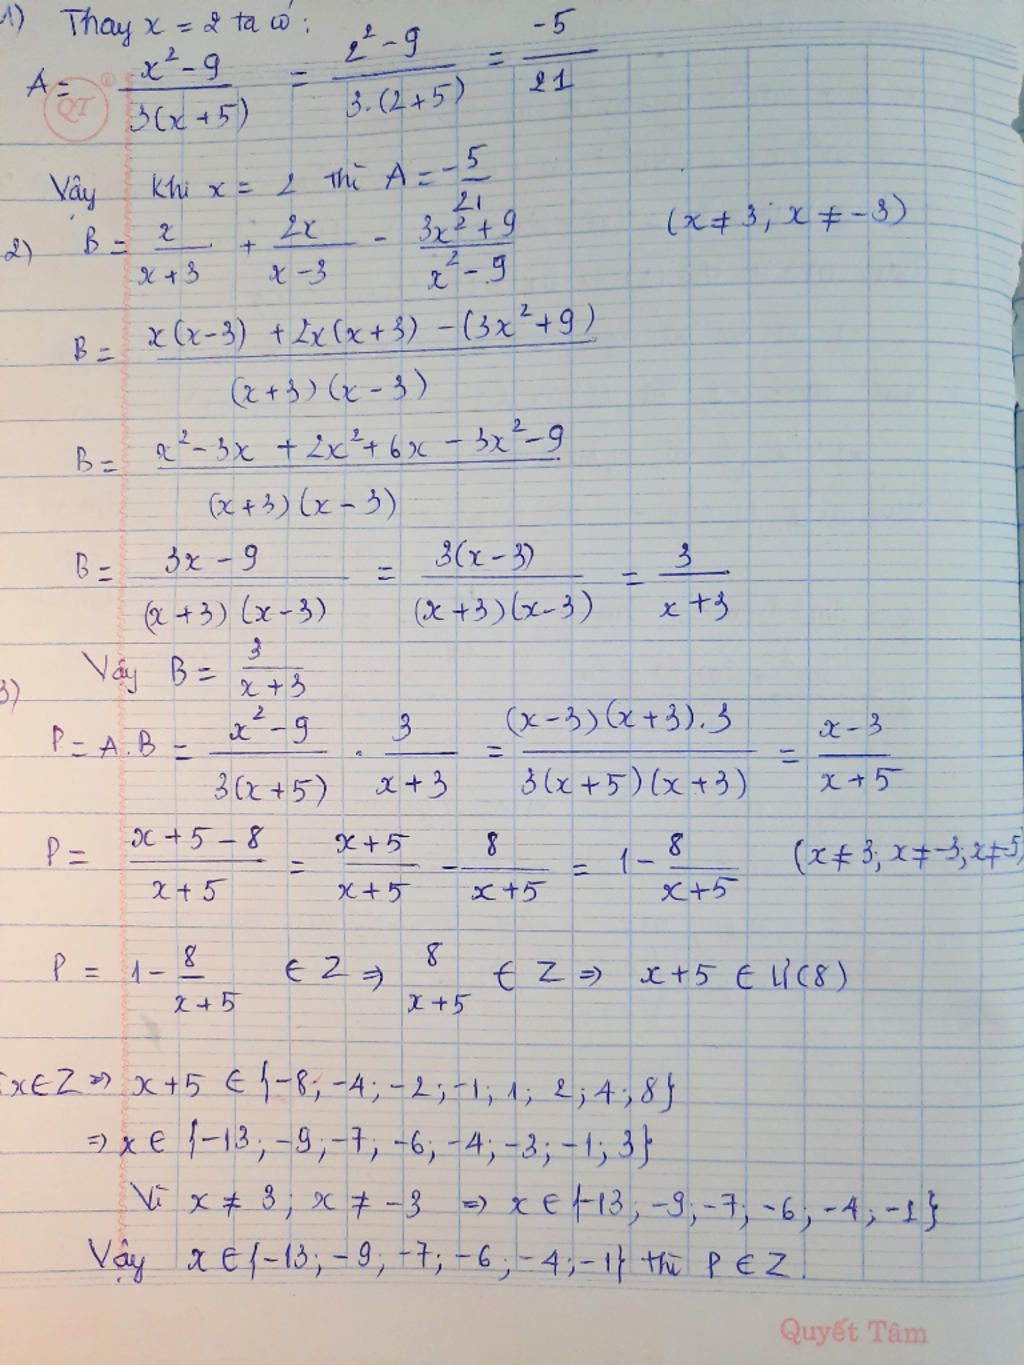 1) Thay x = 2 ta có:
A = (x² - 9)/(3(x + 5)) = (2² - 9)/(3.(2 + 5)) = -5/21
QT
Vậy khi x = 2 thì A = -5/21
2) B = x/(x + 3) + 2x/(x - 3) - (3x² + 9)/(x² - 9) (x ≠ 3; x ≠ -3)
B = (x(x - 3) + 2x(x + 3) - (3x² + 9))/((x + 3)(x - 3))
B = (x² - 3x + 2x² + 6x - 3x² - 9)/((x + 3)(x - 3))
B = (3x - 9)/((x + 3)(x - 3)) = (3(x - 3))/((x + 3)(x - 3)) = 3/(x + 3)
Vậy B = 3/(x + 3)
3)
P = A.B = (x² - 9)/(3(x + 5)) . 3/(x + 3) = ((x - 3)(x + 3).3)/(3(x + 5)(x + 3)) = (x - 3)/(x + 5)
P = (x + 5 - 8)/(x + 5) = (x + 5)/(x + 5) - 8/(x + 5) = 1 - 8/(x + 5) (x ≠ 3; x ≠ -3; x ≠ -5)
P = 1 - 8/(x + 5) ∈ Z ⇒ 8/(x + 5) ∈ Z ⇒ x + 5 ∈ Ư(8)
x ∈ Z ⇒ x + 5 ∈ {-8; -4; -2; -1; 1; 2; 4; 8}
⇒ x ∈ {-13; -9; -7; -6; -4; -3; -1; 3}
Vì x ≠ 3; x ≠ -3 ⇒ x ∈ {-13; -9; -7; -6; -4; -1}
Vậy x ∈ {-13; -9; -7; -6; -4; -1} thì P ∈ Z.
Quyết Tâm